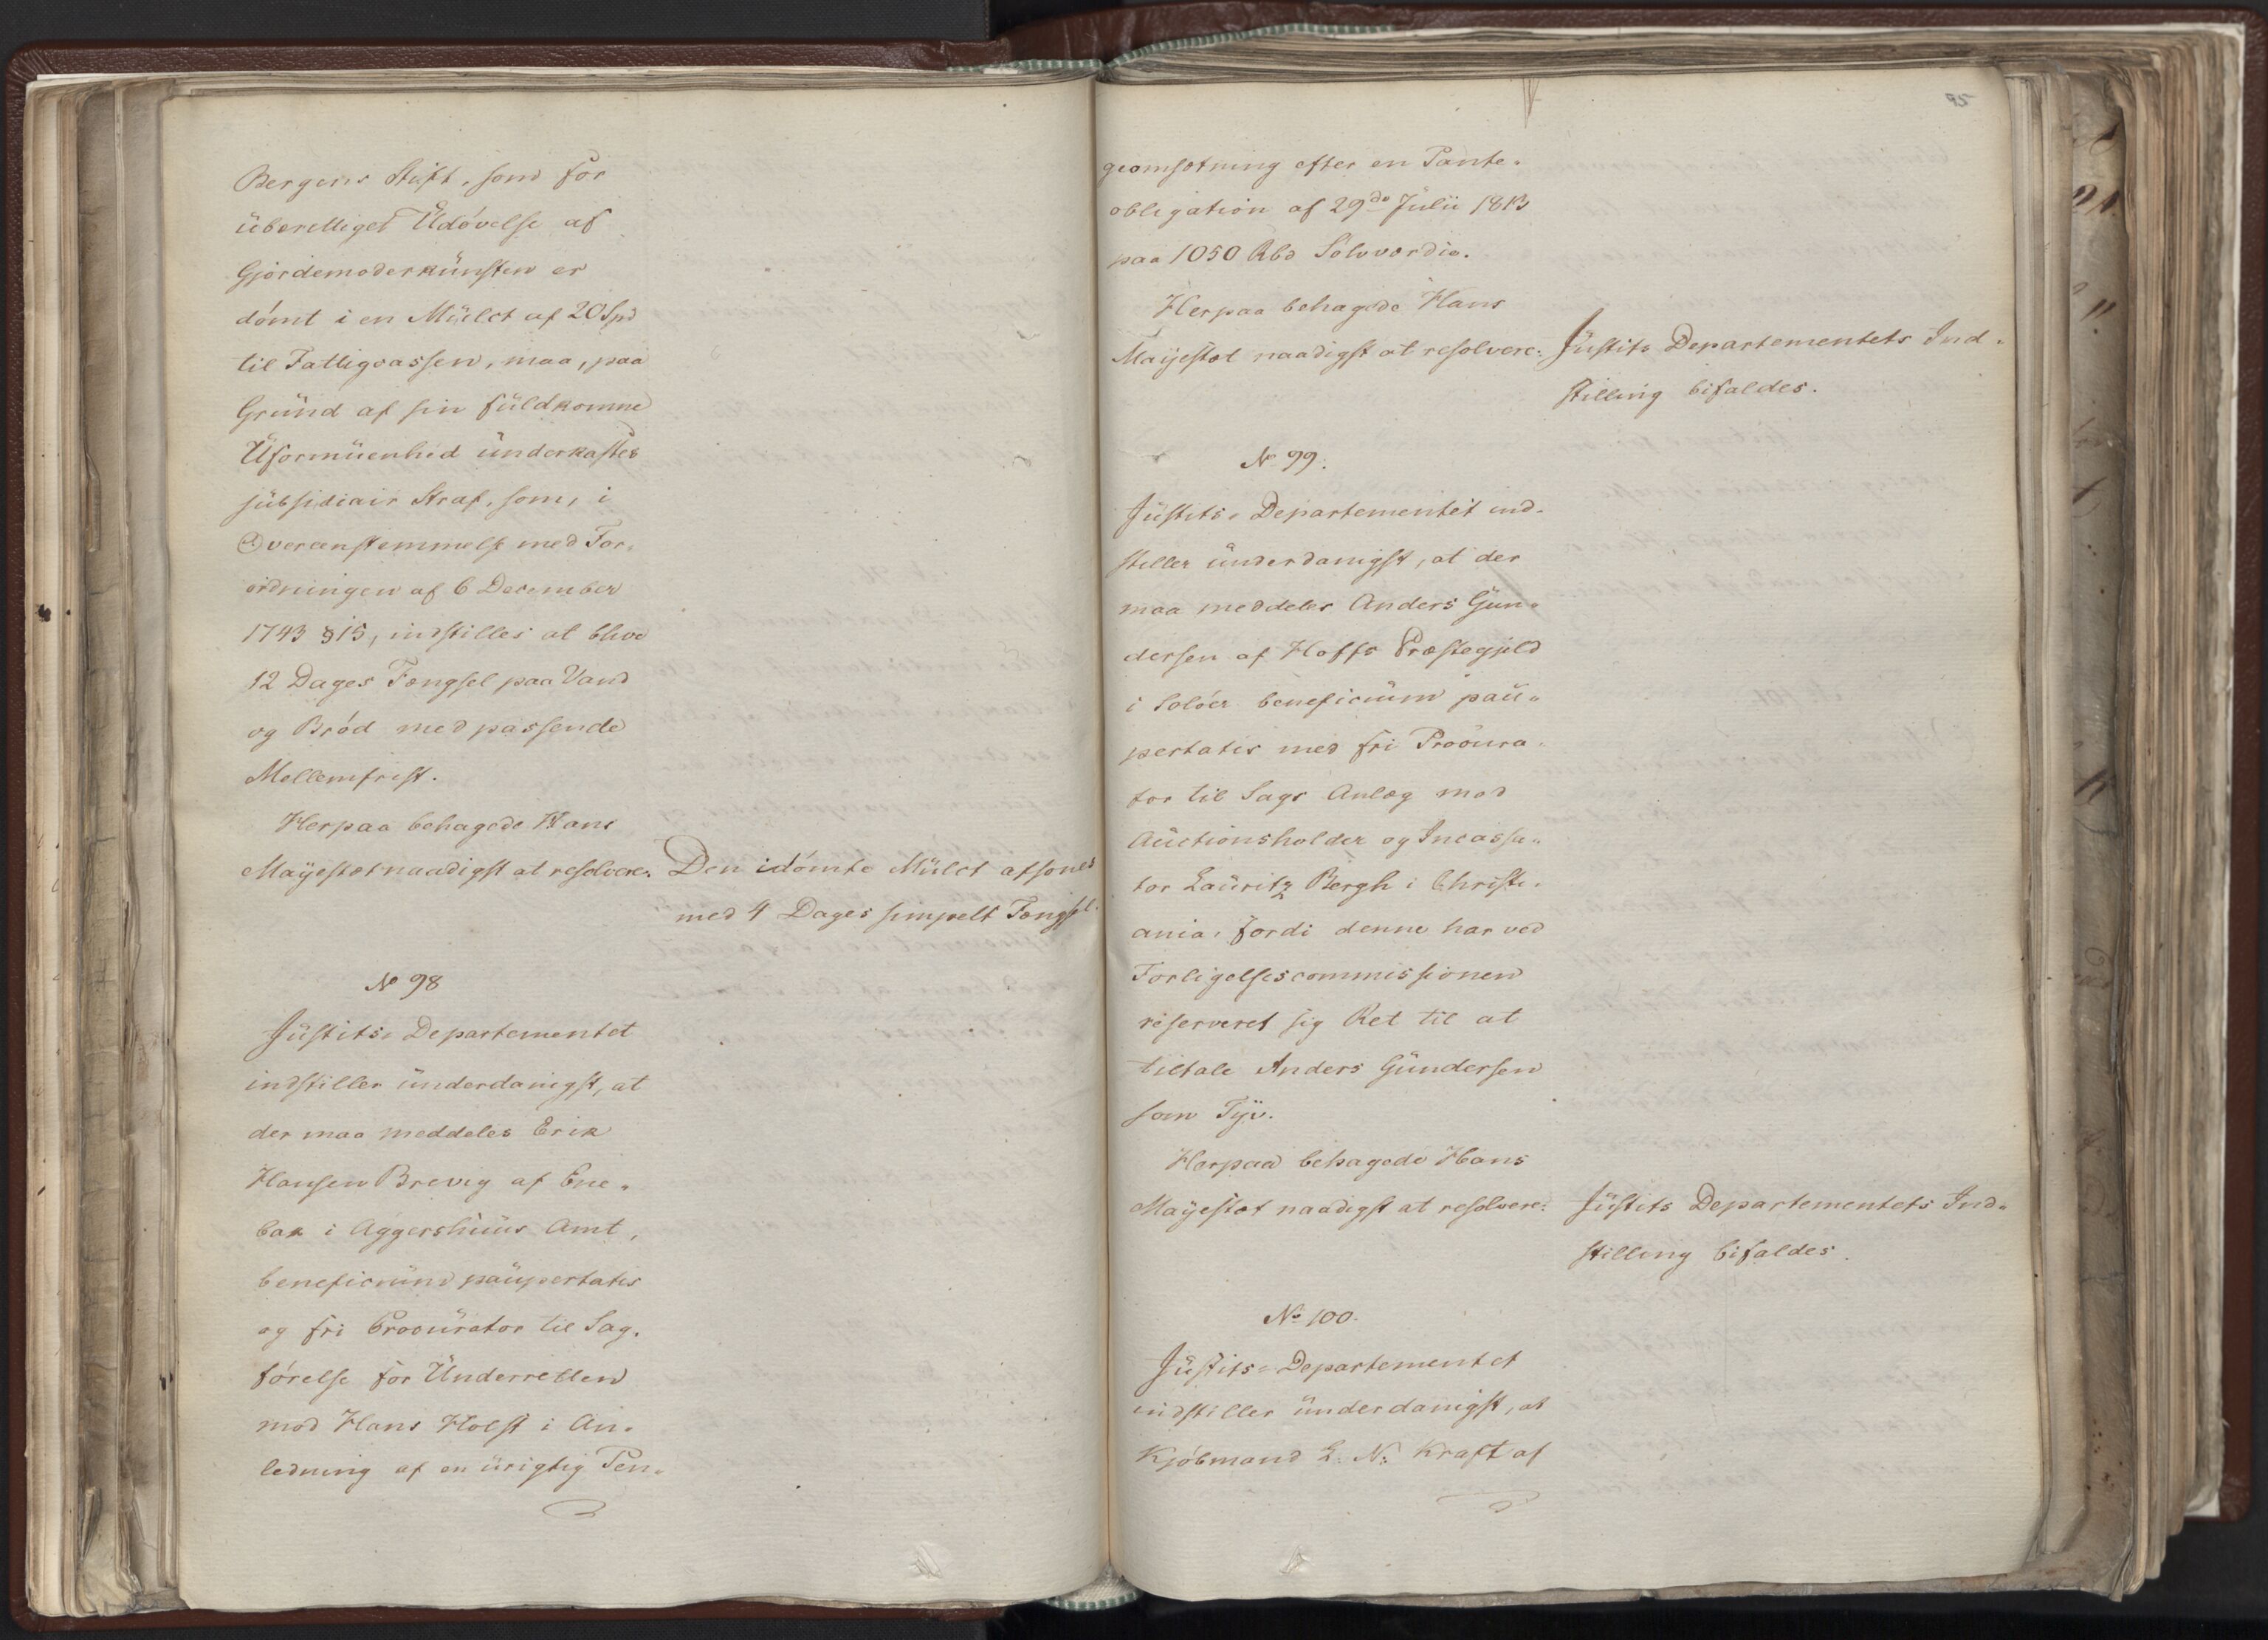 Bergens Stift, som for
uberettiget Udøvelse af
Gjordemoderkunsten er
dømt i en Mulct af 20 Spd
til Fattigcassen, maa, paa
Grund af sin fuldkomne
Uformuenhed underkastes
subsidiair Straf, som, i
Overeenstemmelse med For-
ordningen af 6 December
1743 § 15, indstilles at blive
12 Dages Fængsel paa Vand
og Brød med passende
Mellemfrist.
Herpaa behagede Hans
Majestæt naadigst at resolvere:
Den idømte Mulct afsones
med 4 Dages simpelt Fængsel.
No 98
Justits-Departementet
indstiller underdanigst, at
der maa meddeles Erik
Hansen Brevig af Ene-
bak i Aggershuus Amt,
beneficium paupertatis
og fri Procurator til Sag-
førelse for Underretten
mod Hans Holst i An-
ledning af en urigtig Pen-
95
geomsætning efter en Pante-
obligation af 29de Julii 1813
paa 1050 Rbd Sølvværdie.
Herpaa behagede Hans
Majestæt naadigst at resolvere:
Justits Departementets Ind-
stilling bifaldes.
No 99.
Justits-Departementet ind-
stiller underdanigst, at der
maa meddeles Anders Gun-
dersen af Hoffs Præstegjeld
i Soløer beneficium pau-
pertatis med fri Procura-
tor til Sags Anlæg mod
Auctionsholder og Incassa-
tor Lauritz Bergh i Christi-
ania, fordi denne har ved
Forligelsescommissionen
reserveret sig Ret til at
tiltale Anders Gundersen
som Tyv.
Herpaa behagede Hans
Majestæt naadigst at resolvere:
Justits Departementets Ind-
stilling bifaldes.
No 100.
Justits-Departementet
indstiller underdanigst, at
Kjøbmand L. N. Kraft af